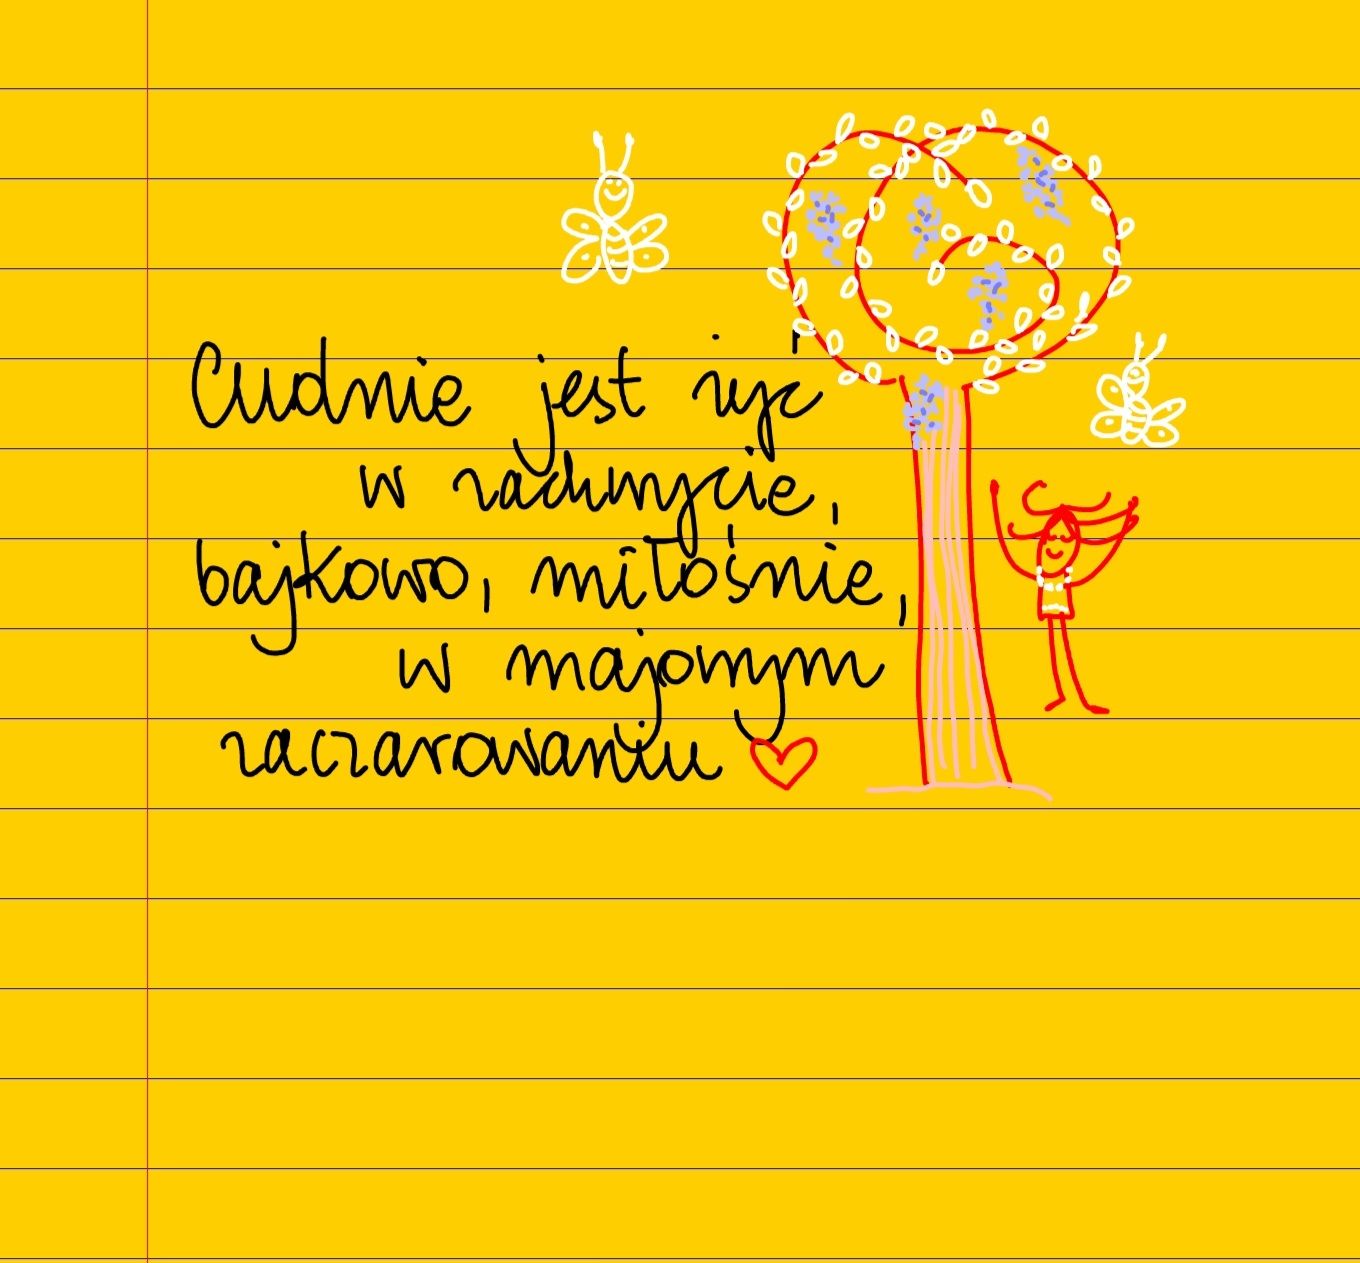 Cudnie jest żyć
w zachwycie,
bajkowo, miłośnie,
w majowym
zaczarowaniu